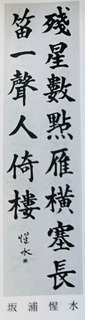 殘星數點雁橫塞長
笛一聲人倚樓
惺水
坂浦惺水